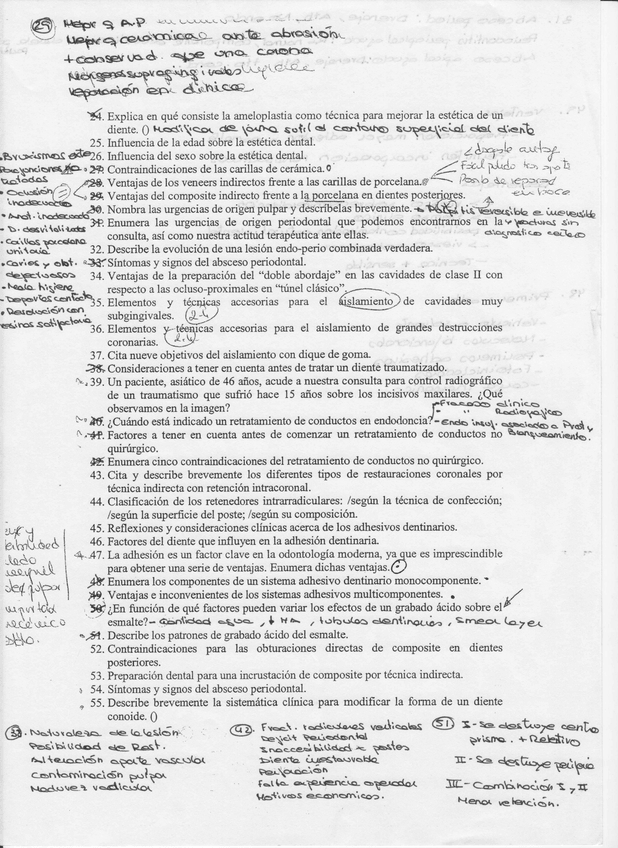 25 Mejor q A.P
Mejor q ceramica ante abrasión
+ conservad. que una corona
Margenes supragingivales
reparación en clinica
24. Explica en qué consiste la ameloplastia como técnica para mejorar la estética de un
diente. () Modificar de forma sutil el contorno superficial del diente
25. Influencia de la edad sobre la estética dental.
26. Influencia del sexo sobre la estética dental.
27. Contraindicaciones de las carillas de cerámica.
28. Ventajas de los veneers indirectos frente a las carillas de porcelana.
29. Ventajas del composite indirecto frente a la porcelana en dientes posteriores.
30. Nombra las urgencias de origen pulpar y descríbelas brevemente. + Pulpitis reversible e irreversible
31. Enumera las urgencias de origen periodontal que podemos encontrarnos en la
consulta, así como nuestra actitud terapéutica ante ellas.
+ fracturas sin
diagnostico certero
32. Describe la evolución de una lesión endo-perio combinada verdadera.
33. Síntomas y signos del absceso periodontal.
34. Ventajas de la preparación del “doble abordaje” en las cavidades de clase II con
respecto a las ocluso-proximales en “túnel clásico”.
35. Elementos y técnicas accesorias para el aislamiento de cavidades muy
subgingivales. 2-4
36. Elementos y técnicas accesorias para el aislamiento de grandes destrucciones
coronarias. 2-4
37. Cita nueve objetivos del aislamiento con dique de goma.
38. Consideraciones a tener en cuenta antes de tratar un diente traumatizado.
39. Un paciente, asiático de 46 años, acude a nuestra consulta para control radiográfico
de un traumatismo que sufrió hace 15 años sobre los incisivos maxilares. ¿Qué
observamos en la imagen?
- Fracaso clinico
- " Radiografico
40. ¿Cuándo está indicado un retratamiento de conductos en endodoncia? - Endo insuf. asociado a Prot y
Blanqueamiento.
41. Factores a tener en cuenta antes de comenzar un retratamiento de conductos no
quirúrgico.
42. Enumera cinco contraindicaciones del retratamiento de conductos no quirúrgico.
43. Cita y describe brevemente los diferentes tipos de restauraciones coronales por
técnica indirecta con retención intracoronal.
44. Clasificación de los retenedores intrarradiculares: /según la técnica de confección;
/según la superficie del poste; /según su composición.
45. Reflexiones y consideraciones clínicas acerca de los adhesivos dentinarios.
46. Factores del diente que influyen en la adhesión dentinaria.
47. La adhesión es un factor clave en la odontología moderna, ya que es imprescindible
para obtener una serie de ventajas. Enumera dichas ventajas.
48. Enumera los componentes de un sistema adhesivo dentinario monocomponente.
49. Ventajas e inconvenientes de los sistemas adhesivos multicomponentes.
50. ¿En función de qué factores pueden variar los efectos de un grabado ácido sobre el
esmalte? - Cantidad agua, ↓ HA, tubulos dentinarios, smear layer
51. Describe los patrones de grabado ácido del esmalte.
52. Contraindicaciones para las obturaciones directas de composite en dientes
posteriores.
53. Preparación dental para una incrustación de composite por técnica indirecta.
54. Síntomas y signos del absceso periodontal.
55. Describe brevemente la sistemática clínica para modificar la forma de un diente
conoide. ()
• Bruxismos
• Oclusión
inadecuada
• Anat. inadecuada
• D. desvitalizados
• Carillas porcelana
unitaria
• Caries y obt.
defectuosos
• Mala higiene
• Deportes contacto
• Resolución con
resinas satisfactoria
38. Naturaleza de la lesión
Posibilidad de Rest.
Alteración aporte vascular
Contaminación pulpar
Madurez radicular
42. Fract. radiculares verticales
Deficit Periodontal
Inaccesibilidad x postes
Diente irrestaurable
Perforación
Falta experiencia operador
Motivos economicos.
51 I - Se destruye centro
prisma. + Retentivo
II - Se destruye periferia
III - Combinación I y II
Menor retención.